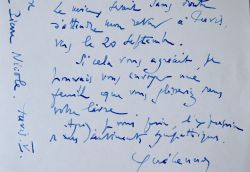 le mieux serait sans doute
s'attendre mon retour à Paris,
vers le 20 septembre.
Si cela vous agréait, je
pourrais vous envoyer une
feuille que vous glisseriez dans
votre livre.
je vous prie, à l'expression
de mes sentiments sympathiques.
Nicole. Paris V.